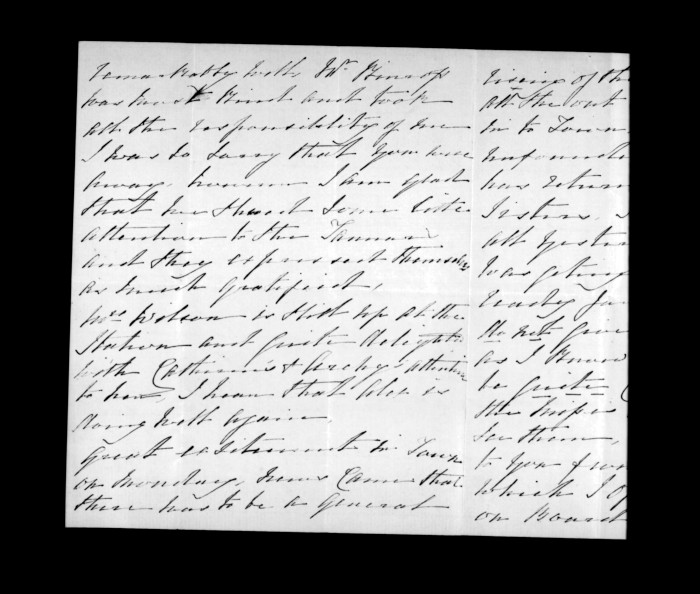 remarkably well, Mr Binsop
was most kind and took
all the responsibility of me
I was so sorry that you were
away, however I am glad
that we showed some little
attention to the
and they expressed themselves
as much gratified,
Mrs Wilson is still up at the
Station and quite delighted
with Catherine's & Archy's attention
to her, I hear that Alex is
doing well again.
Great excitement in Town
on Monday, news came that
there was to be a General
rising of th
all the out
in to Town
unfounde
has return
Sisters,
all yester
was going
ready for
do not give
as I know
be quite
the
see them,
to you from
which I
on Board